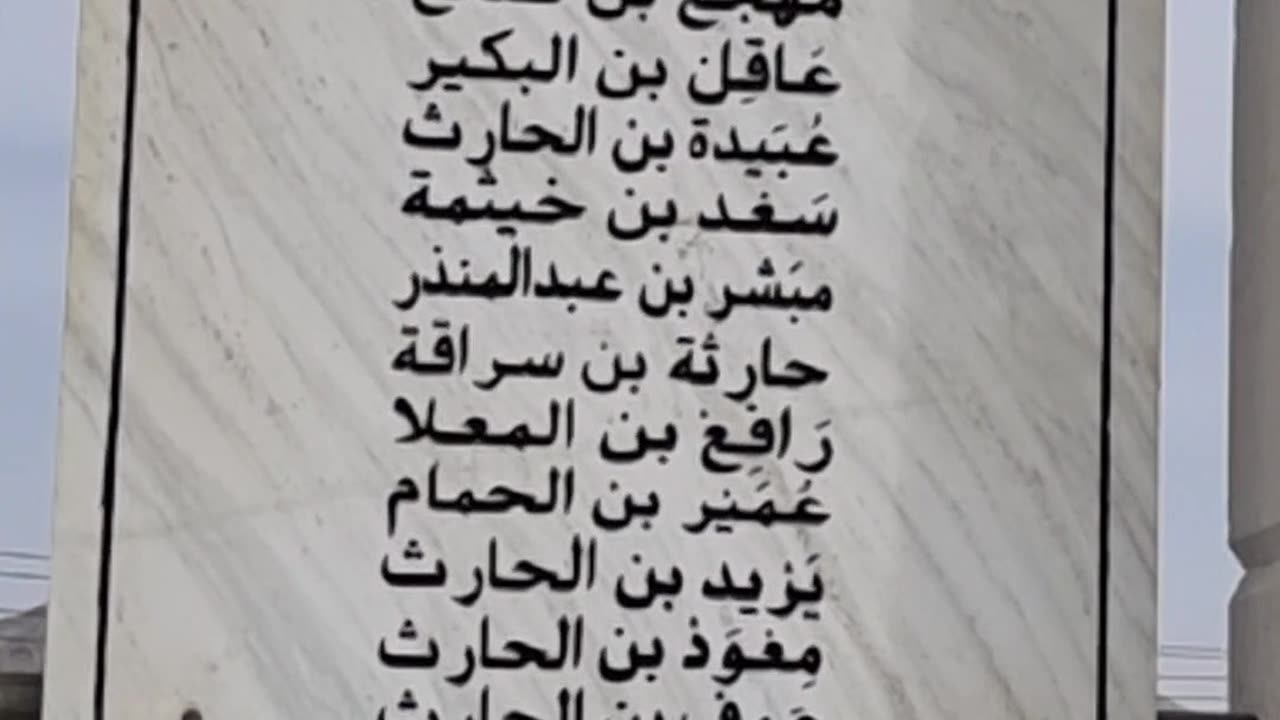 مهجع بن صالح
عَاقِل بن البكير
عُبَيدة بن الحارث
سَعْد بن خيثمة
مبَشر بن عبدالمنذر
حارثة بن سراقة
رَافِعْ بن المعلا
عُمَيْر بن الحمام
يَزيد بن الحارث
مِعْوَذ بن الحارث
عوف بن الحارث